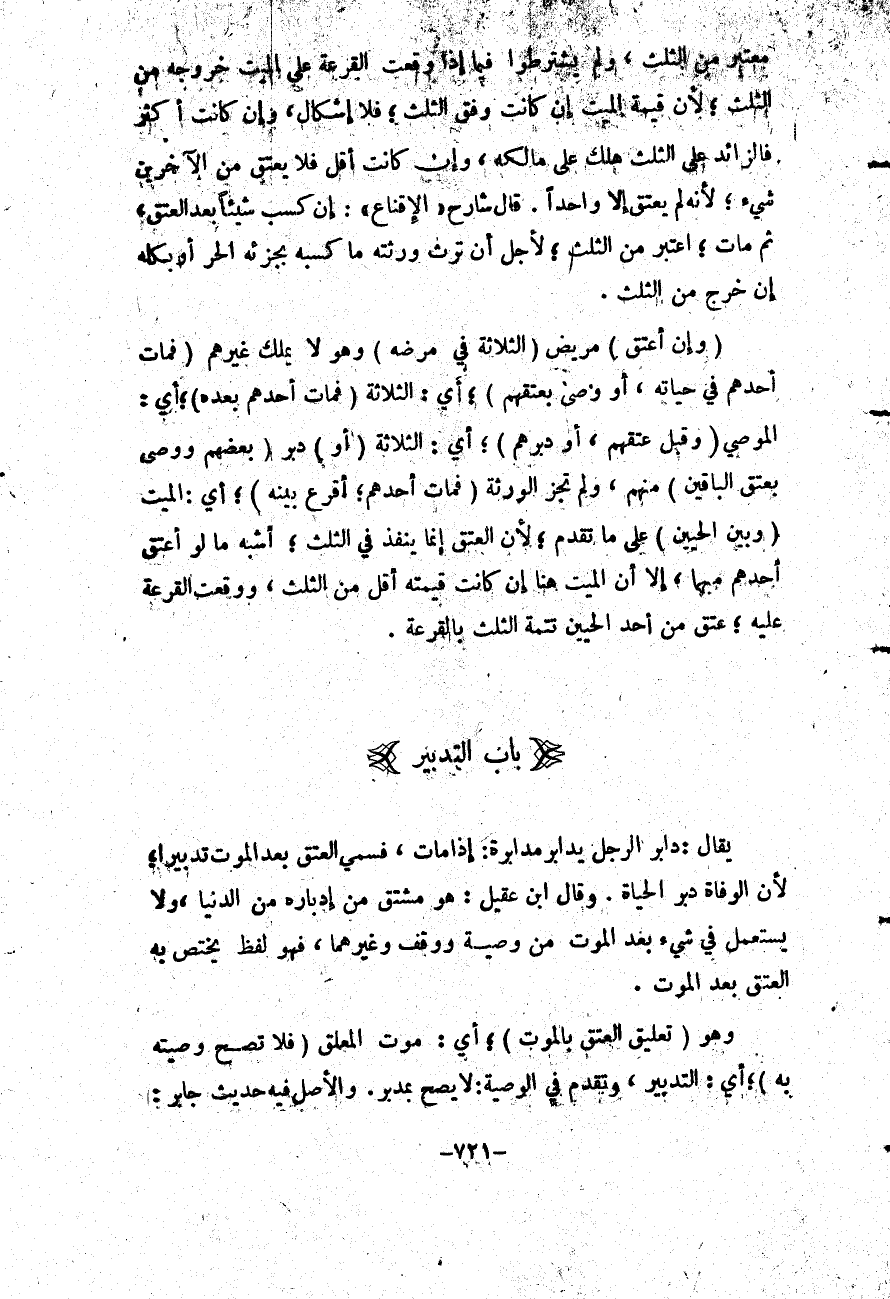 معتبر من الثلث ، ولم يشترطوا فيما إذا وقعت القرعة على الميت خروجه من
الثلث ؛ لأن قيمة الميت إن كانت وفق الثلث ؛ فلا إشكال، وإن كانت أكثر
فالزائد على الثلث هلك على مالكه ، وإن كانت أقل فلا يعتق من الآخرين
شيء ؛ لأنه لم يعتق إلا واحداً . قال شارح « الإقناع » : إن كسب شيئاً بعد العتق ،
ثم مات ؛ اعتبر من الثلث ؛ لأجل أن ترث ورثته ما كسبه بجزئه الحر أو بكله
إن خرج من الثلث .
( وإن أعتق ) مريض ( الثلاثة في مرضه ) وهو لا يملك غيرهم ( فمات
أحدهم في حياته ، أو وصى بعتقهم ) ؛ أي : الثلاثة ( فمات أحدهم بعده ) ؛ أي :
الموصي ( وقبل عتقهم ، أو دبرهم ) ؛ أي : الثلاثة ( أو ) دبر ( بعضهم ووصى
بعتق الباقين ) منهم ، ولم تجز الورثة ( فمات أحدهم ؛ أقرع بينه ) ؛ أي : الميت
( وبين الحيين ) على ما تقدم ؛ لأن العتق إنما ينفذ في الثلث ؛ أشبه ما لو أعتق
أحدهم مبهما ، إلا أن الميت هنا إن كانت قيمته أقل من الثلث ، ووقعت القرعة
عليه ؛ عتق من أحد الحيين تتمة الثلث بالقرعة .
باب التدبير
يقال : دابر الرجل يدابر مدابرة : إذا مات ، فسمي العتق بعد الموت تدبيرا ؛
لأن الوفاة دبر الحياة . وقال ابن عقيل : هو مشتق من إدباره من الدنيا ، ولا
يستعمل في شيء بعد الموت من وصية ووقف وغيرهما ، فهو لفظ يختص به
العتق بعد الموت .
وهو ( تعليق العتق بالموت ) ؛ أي : موت المعلق ( فلا تصح وصيته
به ) ؛ أي : التدبير ، وتقدم في الوصية : لا يصح بمدبر . والأصل فيه حديث جابر :
-٧٢١-